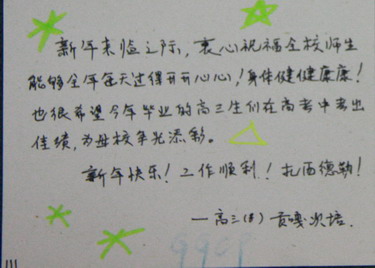 新年来临之际，衷心祝福全校师生
能够全年每天过得开开心心，！身体健健康康！
也很希望今年毕业的高三生们在高考中考出
佳绩，为母校争光添彩。
新年快乐！工作顺利！扎西德勒！
—高三(8) 贡嘎次培.